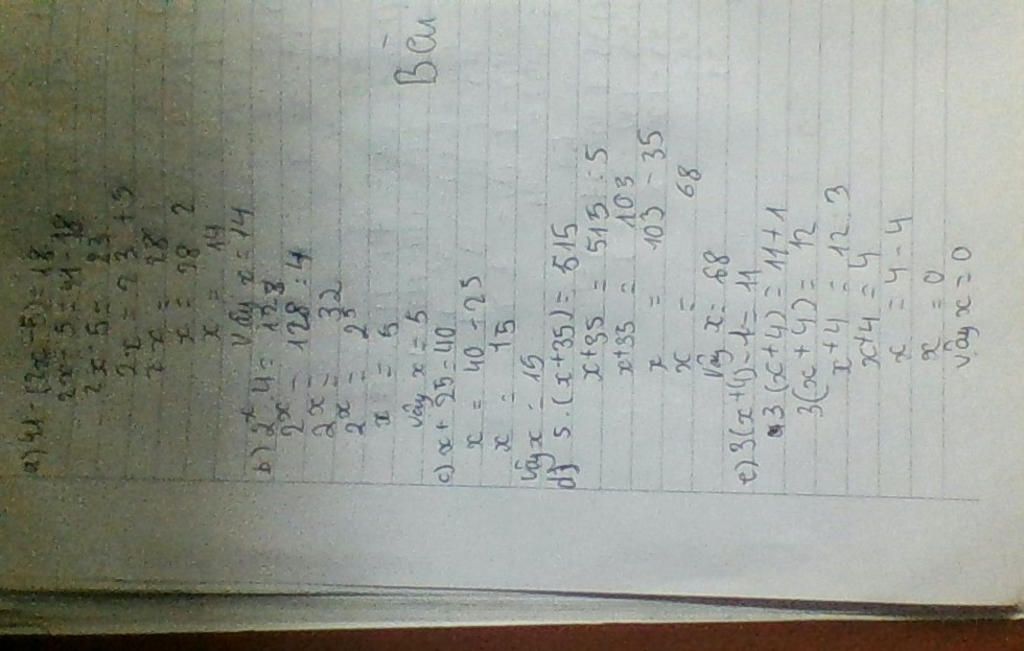 a) 41 - (2x - 5) = 18
2x - 5 = 41 - 18
2x - 5 = 23
2x = 23 + 5
2x = 28
x = 28 : 2
x = 14
Vậy x = 14
b) 2ˣ.4 = 128
2x = 128 : 4
2x = 32
2x = 2⁵
x = 5
vậy x = 5
c) x + 25 = 40
x = 40 - 25
x = 15
Vậy x = 15
d) 5.(x + 35) = 515
x + 35 = 515 : 5
x + 35 = 103
x = 103 - 35
x = 68
Vậy x = 68
e) 3(x + 4) - 1 = 11
3(x + 4) = 11 + 1
3(x + 4) = 12
x + 4 = 12 : 3
x + 4 = 4
x = 4 - 4
x = 0
vậy x = 0